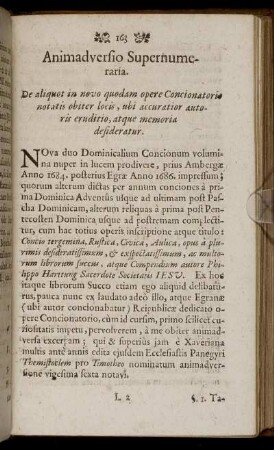 163
Animadversio Supernume-
raria.
De aliquot in novo quodam opere Concionatorio
notatis obiter locis, ubi accuratior auto-
ris eruditio, atque memoria
desideratur.
NOva duo Dominicalium Concionum volumi-
na nuper in lucem prodivere, prius Ambergæ
Anno 1684. posterius Egræ Anno 1686. impressum;
quorum alterum dictas per annum conciones à pri-
ma Dominica Adventûs usque ad ultimam post Pas-
cha Dominicam, alterum reliquas à prima post Pen-
tecosten Dominica usque ad postremam complecti-
tur, cum hac totius operis inscriptione atque titulo:
Concio tergemina, Rustica, Civica, Aulica, opus à plu-
rimis desideratissimum, & exspectatissimum, ac multo-
rum librorum succus, atque Compendium autore Phi-
lippo Hartung Sacerdote Societatis IESV. Ex hoc
itaque librorum Succo etiam ego aliquid delibatu-
rus, pauca nunc ex laudato adeò illo, atque Egranæ
(ubi autor concionabatur) Reipublicæ dedicato o-
pere Concionatorio, cùm id cursim, primo scilicet cu-
riositatis impetu, pervolverem, à me obiter animad-
versa excerpam; qui & superiùs jam è Xaveriana
multis antè annis edita ejusdem Ecclesiastis Panegyri
Themistoclem pro Timotheo nominatum animadver-
sione vigesima sexta notavi.
L 2
§. 1. Ta-